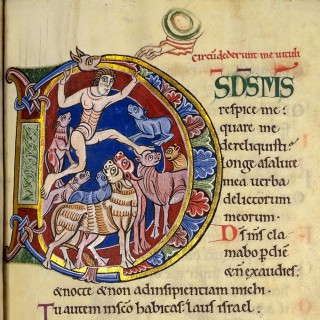 Circūdederunt me uituli
DSDSMS
respice me:
quare me
dereliquisti:
longe a salute
mea uerba
delictorum
meorum·
Ds ms cla
mabo p diē
& ñ exaudies:
& nocte & non ad insipientiam michi·
Tu autem in sco habitas: laus israel·